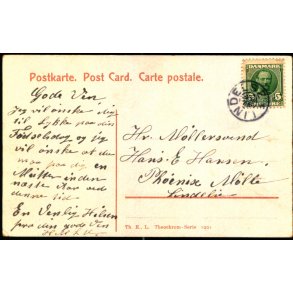 Postkarte. Post Card. Carte postale.
DANMARK
5
LINDE
Gode Ven
jeg vil ønske dig
til Lykke paa din
Fødselsdag og jeg
vil ønske at du
maa faa dig en
Mølle inden
næste Aar ved
denne tid
En Venlig Hilsen
fra din gode Ven
Hr. Møllersvend
Hans E Hansen.
Phönix Mølle
Lindelse
Th. E. L. Theochrom-Serie 1201